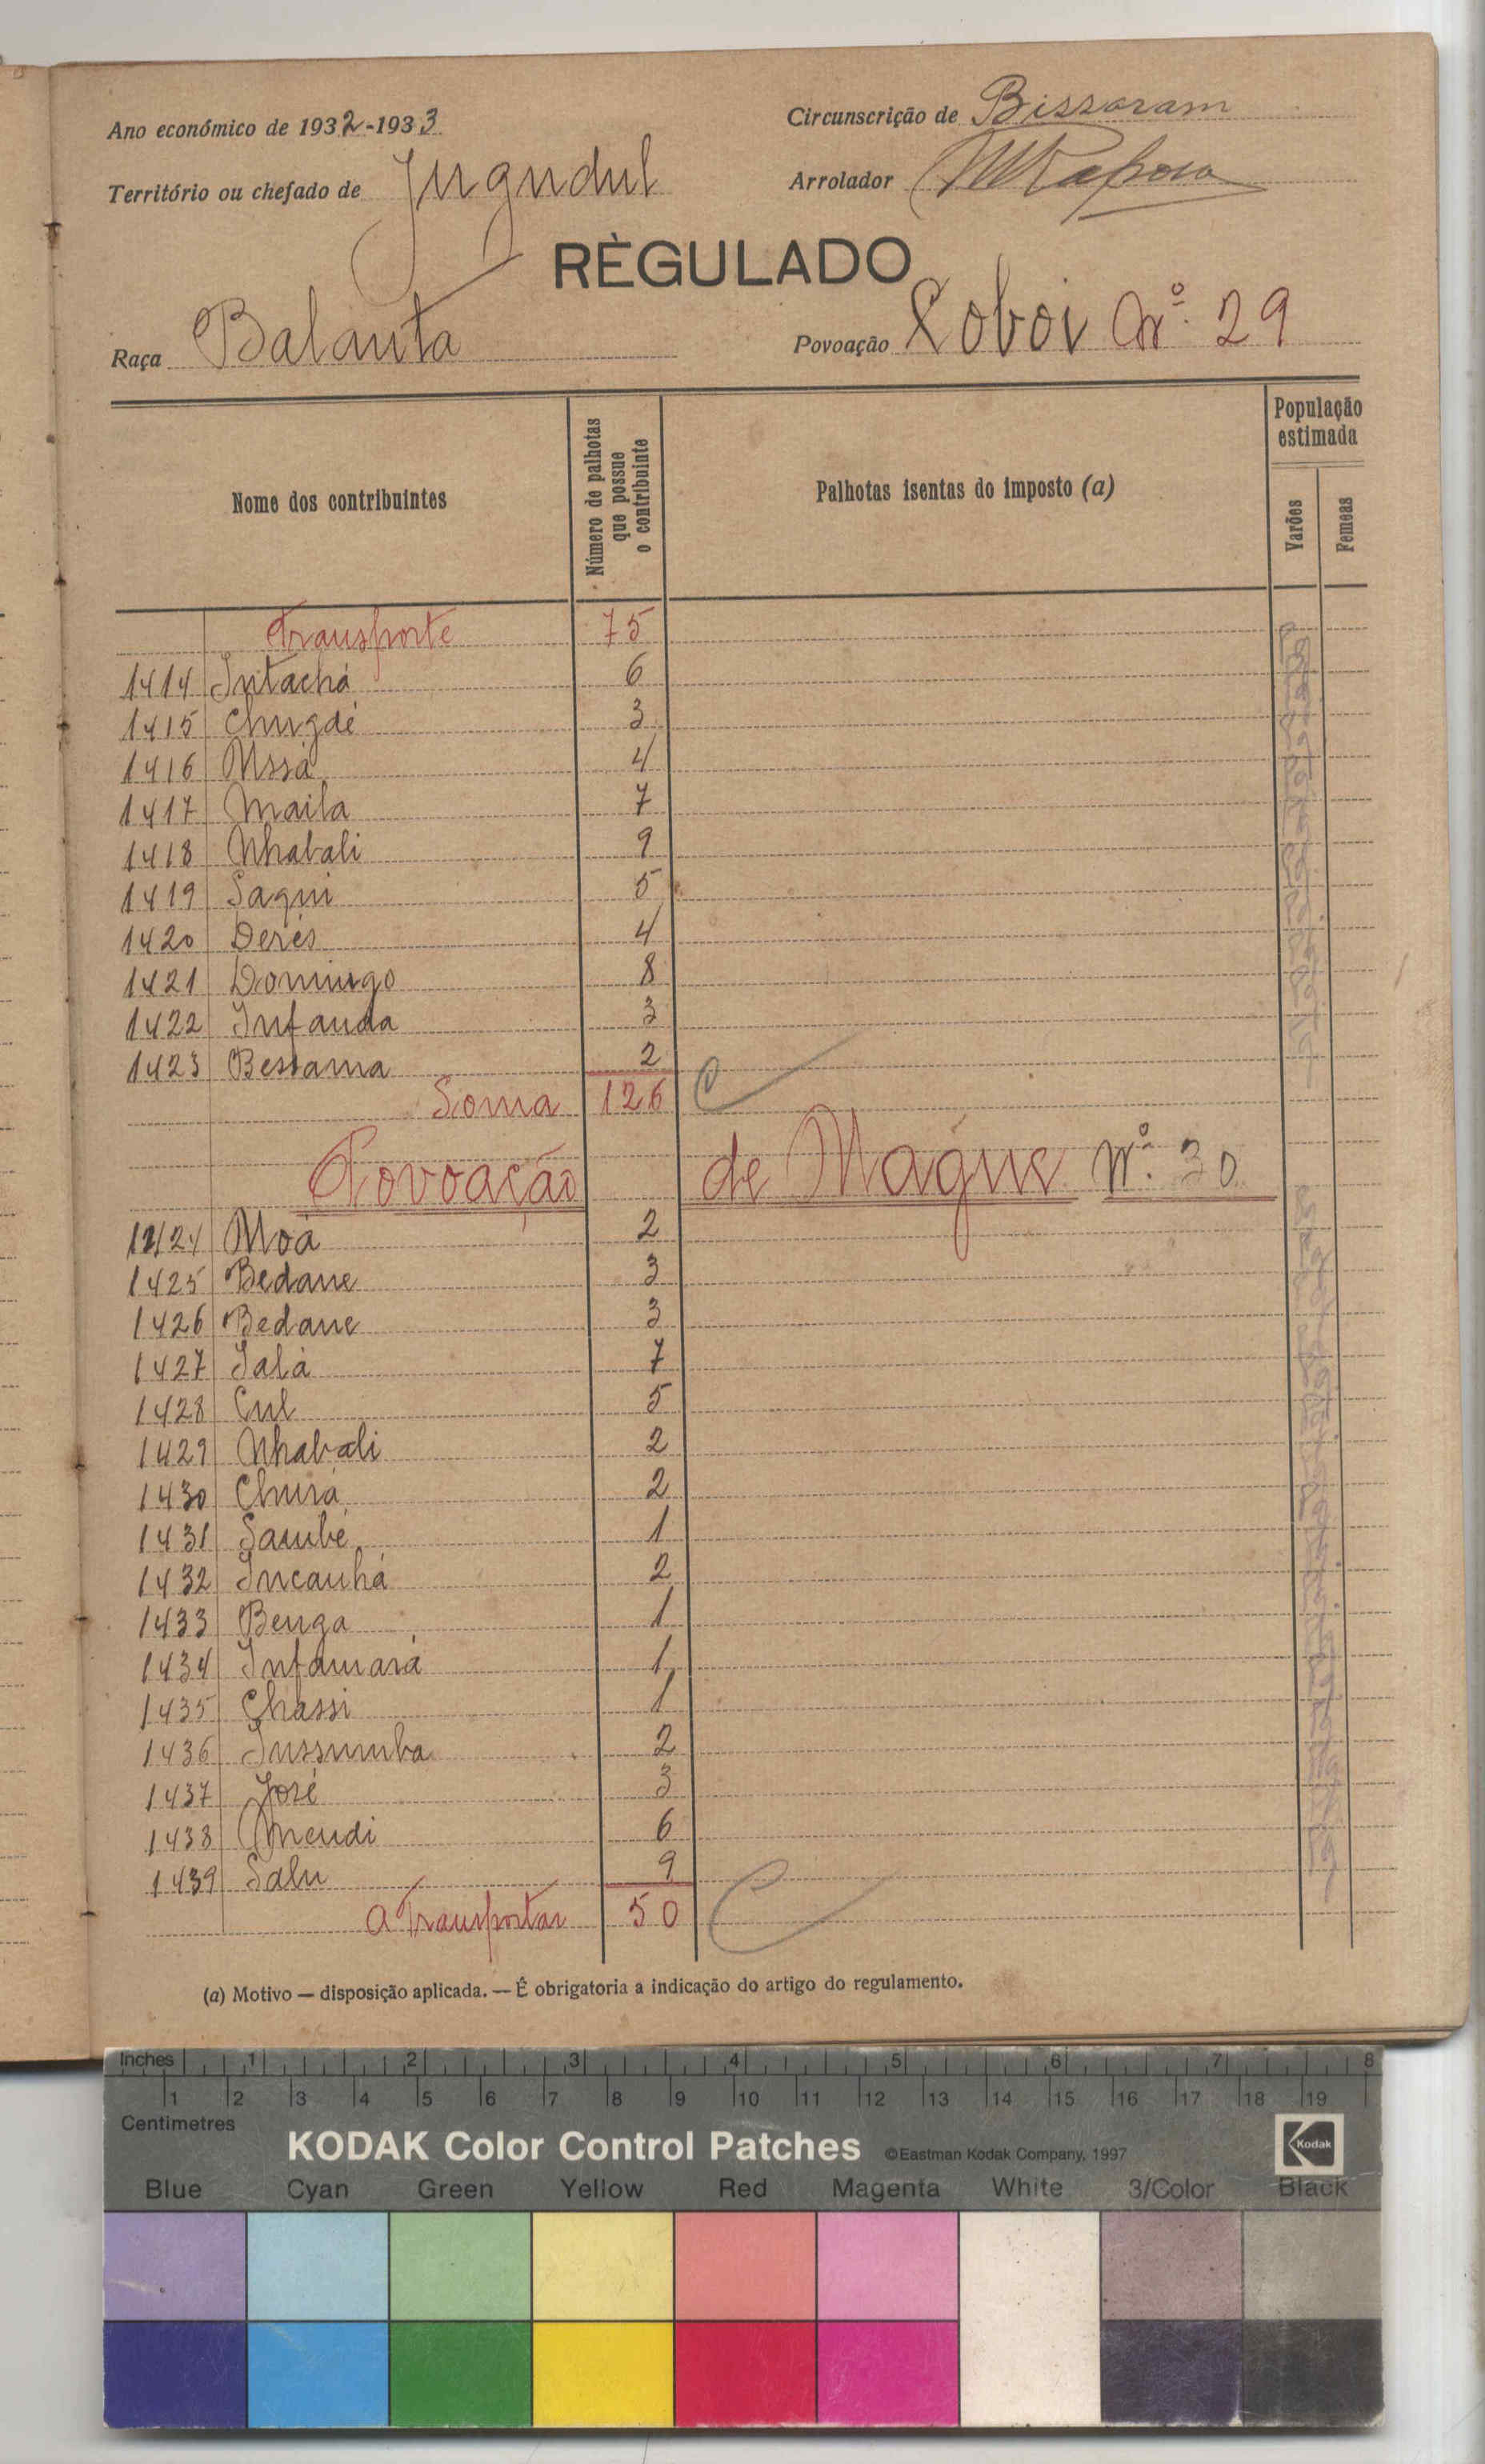 Ano económico de 1932-1933
Circunscrição de Bissoram
Território ou chefado de Jugudul
Arrolador MRaposo
RÈGULADO
Raça Balanta
Povoação Loboi Nº. 29
Nome dos contribuintes
Número de palhotas que possue o contribuinte
Palhotas isentas do imposto (a)
População estimada
Varões
Femeas
Transporte 75
1414 Intachá 6
1415 Chugdé 3
1416 Ussá 4
1417 Maila 7
1418 Nhabali 9
1419 Saqui 5
1420 Derés 4
1421 Domingo 8
1422 Infanda 3
1423 Bessama 2
Soma 126
Povoação de Mágue Nº. 30
1424 Moá 2
1425 Bedane 3
1426 Bedane 3
1427 Ialá 7
1428 Cul 5
1429 Nhabali 2
1430 Churá 2
1431 Sambé 1
1432 Incanhá 2
1433 Benga 1
1434 Infamará 1
1435 Chassi 1
1436 Inssumba 2
1437 José 3
1438 Mendi 6
1439 Salu 9
A Transportar 50
(a) Motivo — disposição aplicada. — É obrigatoria a indicação do artigo do regulamento.
Inches 1 2 3 4 5 6 7 8
1 2 3 4 5 6 7 8 9 10 11 12 13 14 15 16 17 18 19
Centimetres
KODAK Color Control Patches ©Eastman Kodak Company, 1997 Kodak
Blue Cyan Green Yellow Red Magenta White 3/Color Black